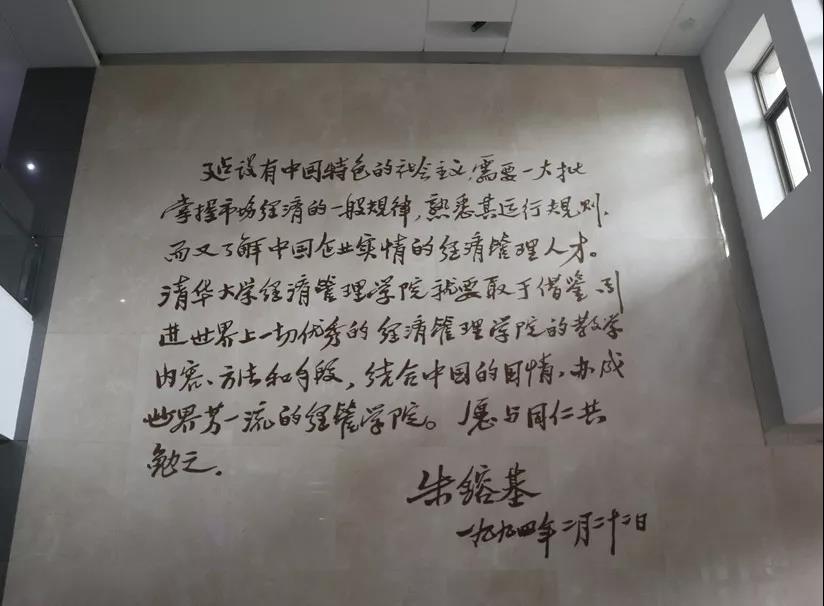 建设有中国特色的社会主义,需要一大批
掌握市场经济的一般规律,熟悉其运行规则,
而又了解中国企业实情的经济管理人才。
清华大学经济管理学院就要敢于借鉴、引
进世界上一切优秀的经济管理学院的教学
内容、方法和手段,结合中国的国情,办成
世界第一流的经管学院。愿与同仁共
勉之。
朱镕基
一九九四年二月二十二日